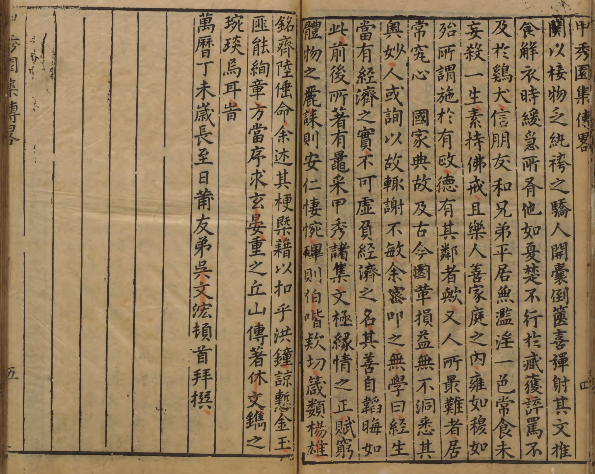 甲秀園集傳畧
閒以接物之紈袴之驕人開囊倒篋喜彈射其文推
食解衣時緩急所青他如憂楚不行於臧獲詬罵不
及於鷄犬信朋友和兄弟平居魚濫淫一邑常食未
妄殺一生素持佛戒且樂人善家庭之內雍如穆如
殆所謂施於有政德有其鄰者歟又人所最難者居
常究心　國家典故及古今因革損益無不洞悉其
奧妙人或詢以故輒謝不敏余密叩之無學曰經生
當有經濟之實不可虛負經濟之名其善自韜晦如
此前後所著有鼂采甲秀諸集文極緣情之正賦窮
體物之麗誄則安仁悽惋碑則伯喈欵切箴類楊雄
銘齊陸倕命余述其梗槩藉以和乎洪鐘諒慙金玉
匪能絢章方當序求玄晏重之丘山傳著休文鐫之
琬琰烏耳旹
萬曆丁未歲長至日莆友弟吳文浤頓首拜撰
甲秀園集傳畧
五